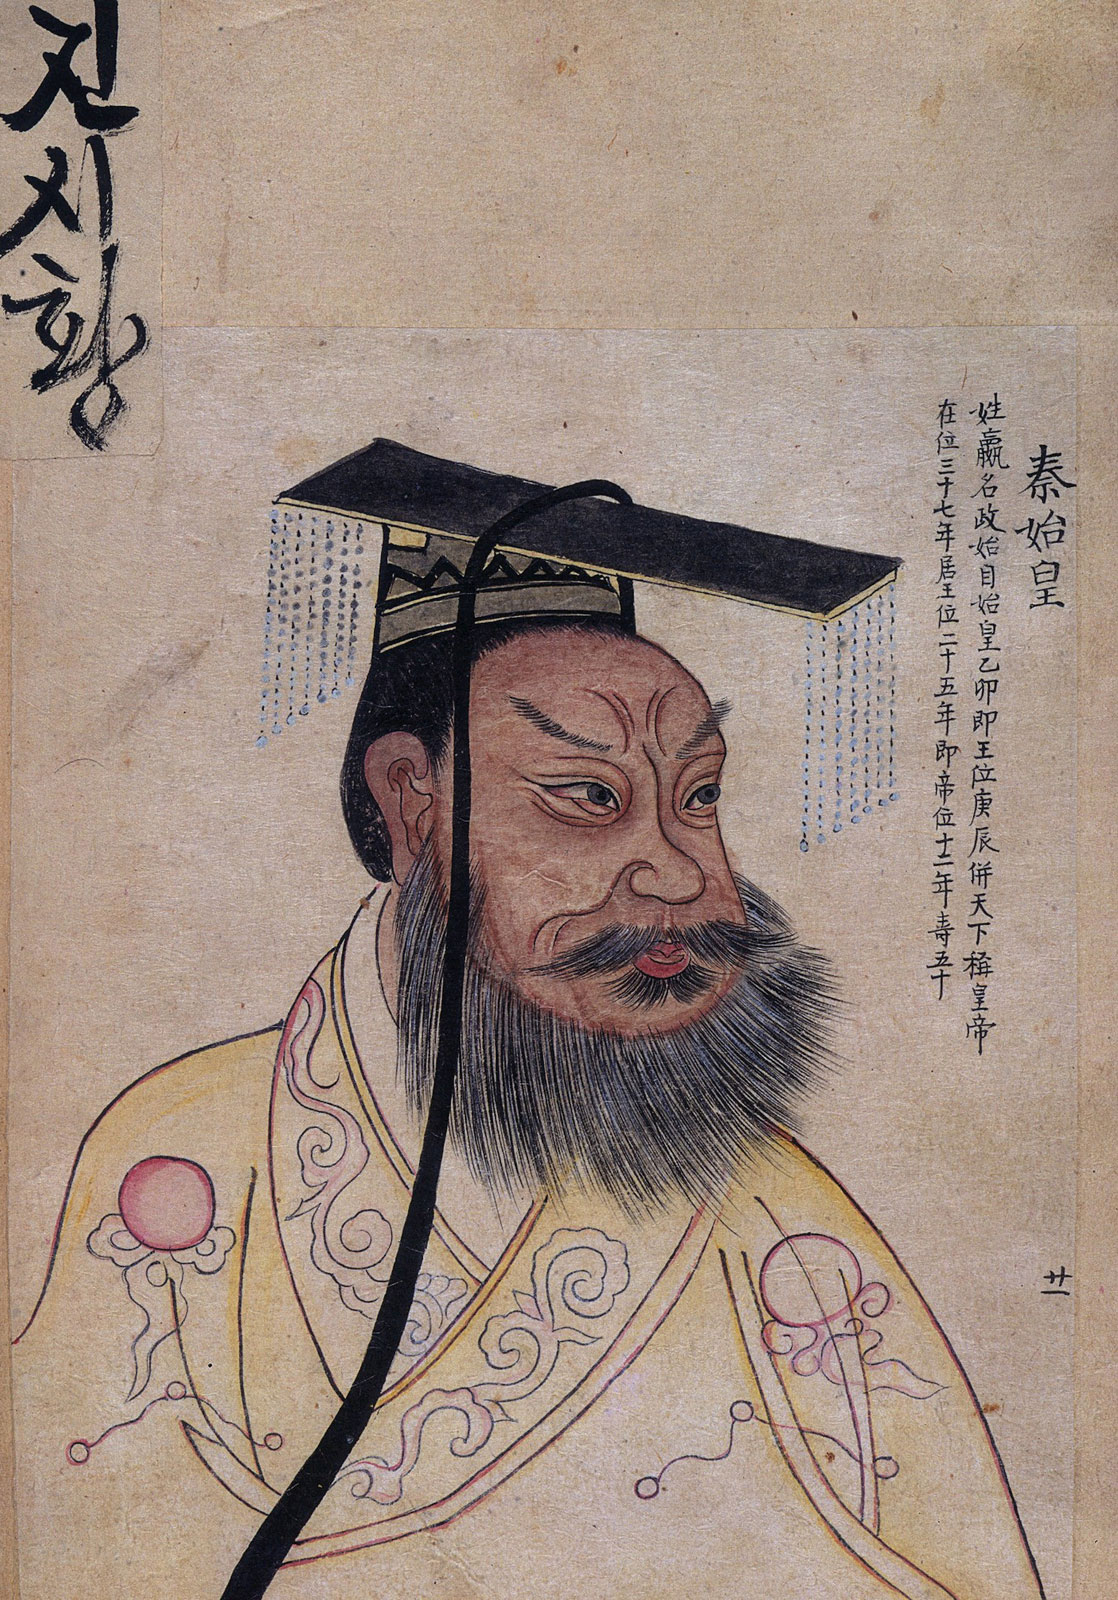 秦始皇
姓嬴名政始自始皇乙卯即王位庚辰併天下稱皇帝
在位三十七年居王位二十五年即帝位十二年壽五十
廿一
진시황